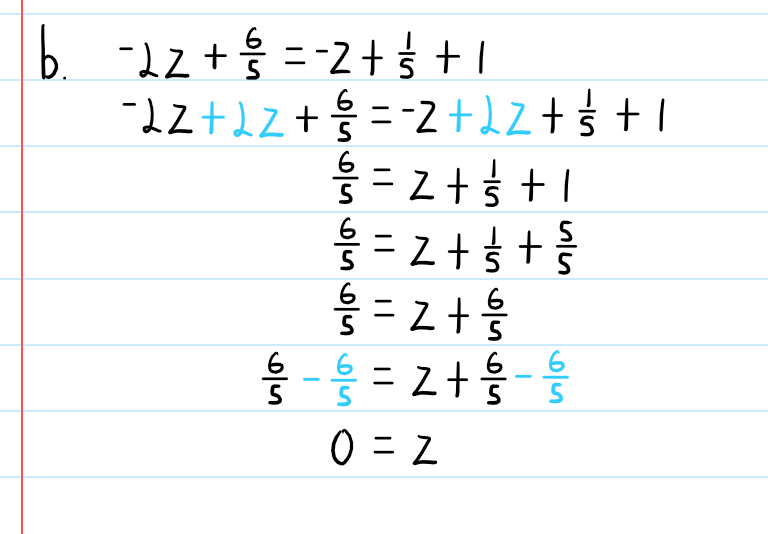 b. -2z + 6/5 = -z + 1/5 + 1
-2z + 2z + 6/5 = -z + 2z + 1/5 + 1
6/5 = z + 1/5 + 1
6/5 = z + 1/5 + 5/5
6/5 = z + 6/5
6/5 - 6/5 = z + 6/5 - 6/5
0 = z